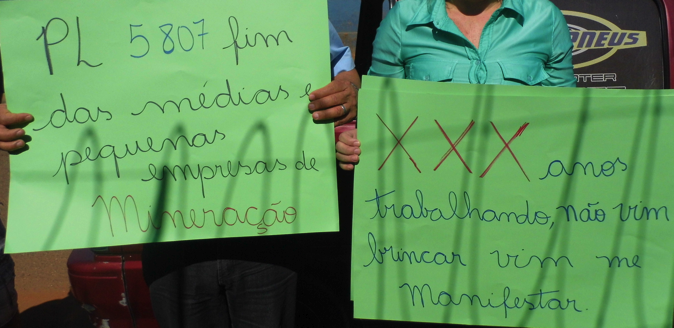 PL 5807 fim
das médias e
pequenas
empresas de
Mineração
XXX anos
trabalhando, não vim
brincar vim me
Manifestar.
NEUS